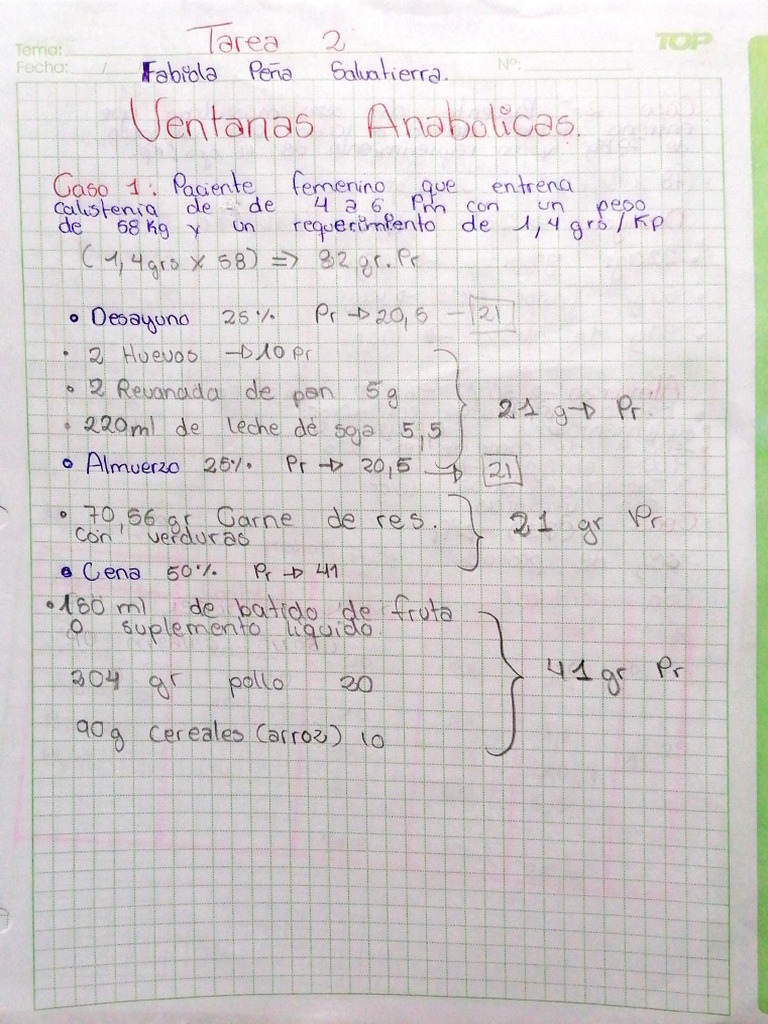 Tarea 2
TOP
Tema:
Fecha: / Nº:
Fabiola Peña Salvatierra.
Ventanas Anabolicas.
Caso 1: Paciente femenino que entrena
calistenia de - de 4 a 6 Pm con un peso
de 58 Kg y un requerimiento de 1,4 grs/KP
(1,4grs x 58) => 82 gr. Pr
• Desayuno 25% Pr → 20,5 - 21
• 2 Huevos → 10 Pr
• 2 Revanada de pan 5g
• 220ml de leche de soja 5,5
21 g → Pr.
• Almuerzo 25% Pr → 20,5 → 21
• 70,56 gr Carne de res.
con verduras
21 gr Pr
• Cena 50% Pr → 41
• 180 ml de batido de fruta
o suplemento liquido
204 gr pollo 20
90g cereales (arroz) 10
41 gr Pr